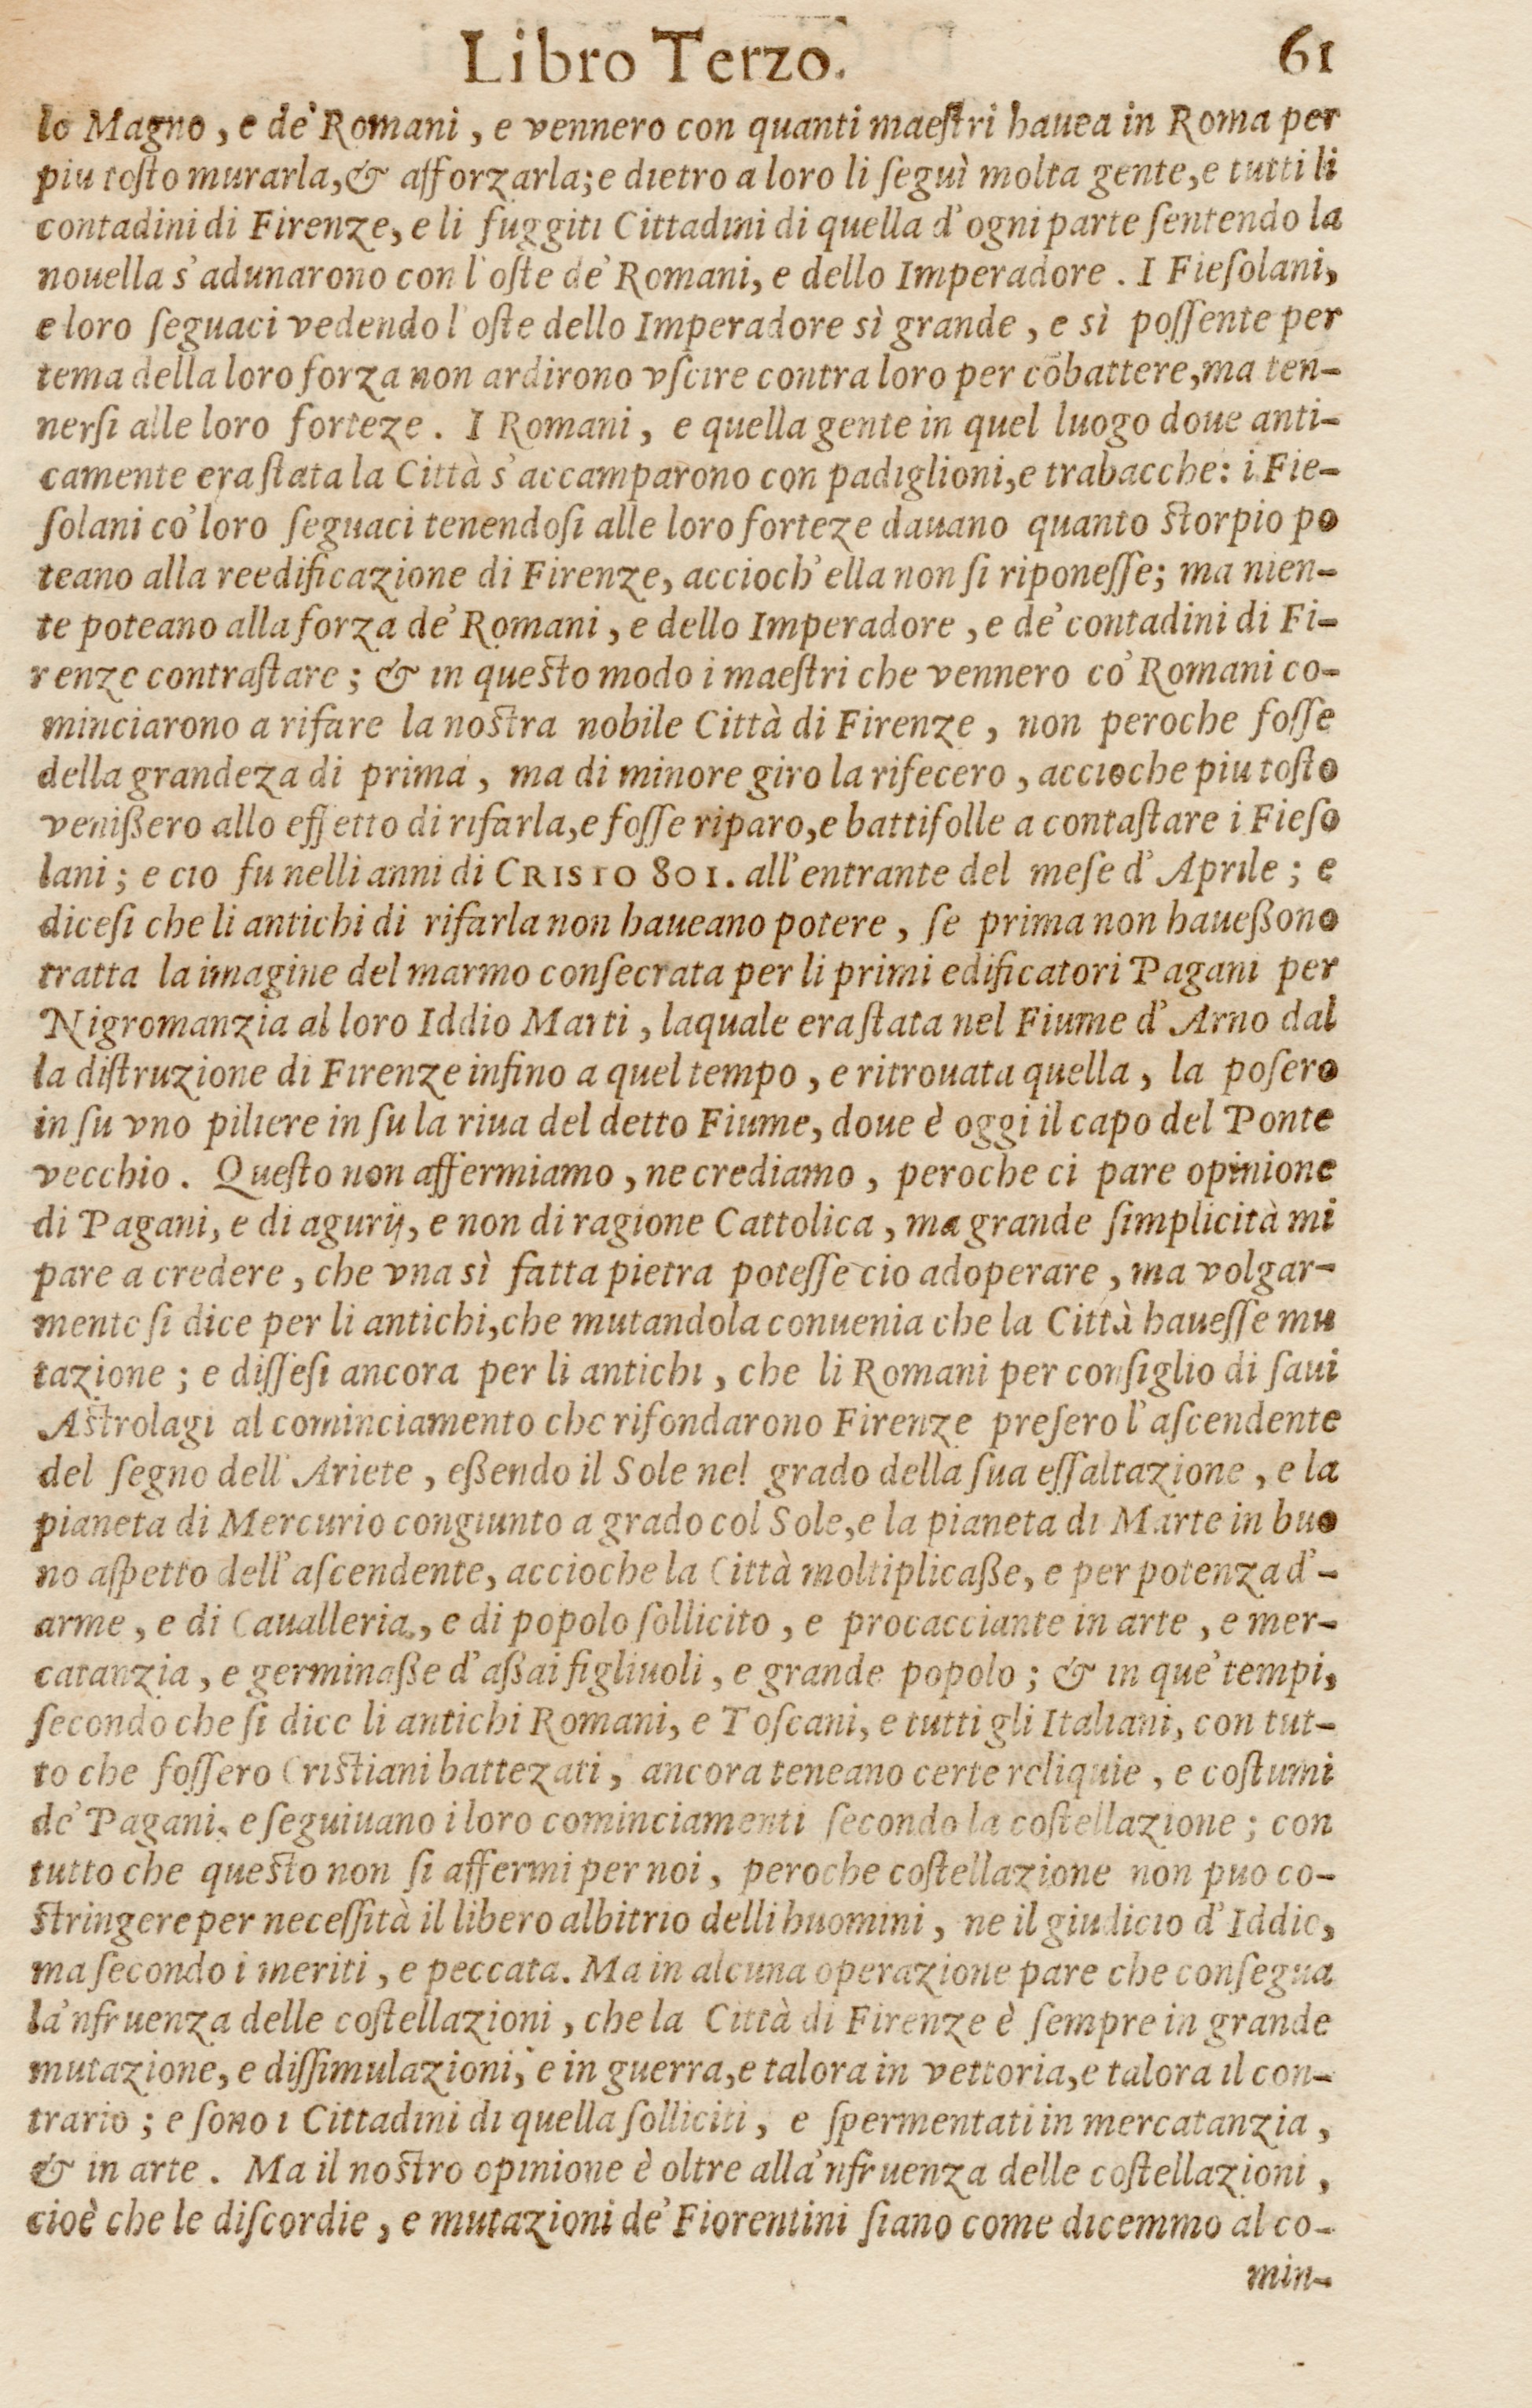 Libro Terzo. 61
lo Magno, e de' Romani, e vennero con quanti maeſtri hauea in Roma per
piu toſto murarla, & afforzarla; e dietro a loro li ſeguì molta gente, e tutti li
contadini di Firenze, e li fuggiti Cittadini di quella d'ogni parte ſentendo la
nouella s'adunarono con l'oſte de' Romani, e dello Imperadore. I Fieſolani,
e loro ſeguaci vedendo l'oſte dello Imperadore sì grande, e sì poſſente per
tema della loro forza non ardirono vſcire contra loro per cōbattere, ma ten-
nerſi alle loro forteze. I Romani, e quella gente in quel luogo doue anti-
camente era ſtata la Città s'accamparono con padiglioni, e trabacche: i Fie-
ſolani co' loro ſeguaci tenendoſi alle loro forteze dauano quanto ſtorpio po
teano alla reedificazione di Firenze, accioch' ella non ſi riponeſſe; ma nien-
te poteano alla forza de' Romani, e dello Imperadore, e de' contadini di Fi-
renze contraſtare; & in queſto modo i maeſtri che vennero co' Romani co-
minciarono a rifare la noſtra nobile Città di Firenze, non peroche foſſe
della grandeza di prima, ma di minore giro la rifecero, accioche piu toſto
venißero allo effetto di rifarla, e foſſe riparo, e battifolle a contaſtare i Fieſo
lani; e cio fu nelli anni di CRISTO 801. all'entrante del meſe d'Aprile; e
diceſi che li antichi di rifarla non haueano potere, ſe prima non haueßono
tratta la imagine del marmo conſecrata per li primi edificatori Pagani per
Nigromanzia al loro Iddio Marti, laquale era ſtata nel Fiume d'Arno dal
la diſtruzione di Firenze infino a quel tempo, e ritrouata quella, la poſero
in ſu vno piliere in ſu la riua del detto Fiume, doue è oggi il capo del Ponte
vecchio. Queſto non affermiamo, ne crediamo, peroche ci pare opinione
di Pagani, e di agurij, e non di ragione Cattolica, ma grande ſimplicità mi
pare a credere, che vna sì fatta pietra poteſſe cio adoperare, ma volgar-
mente ſi dice per li antichi, che mutandola conuenia che la Città haueſſe mu
tazione; e diſſeſi ancora per li antichi, che li Romani per conſiglio di ſaui
Aſtrolagi al cominciamento che rifondarono Firenze preſero l'aſcendente
del ſegno dell'Ariete, eßendo il Sole nel grado della ſua eſſaltazione, e la
pianeta di Mercurio congiunto a grado col Sole, e la pianeta di Marte in buo
no aſpetto dell'aſcendente, accioche la Città moltiplicaße, e per potenza d'-
arme, e di Caualleria, e di popolo ſollicito, e procacciante in arte, e mer-
catanzia, e germinaße d'aßai figliuoli, e grande popolo; & in que' tempi,
ſecondo che ſi dice li antichi Romani, e Toſcani, e tutti gli Italiani, con tut-
to che foſſero Criſtiani battezati, ancora teneano certe reliquie, e coſtumi
de' Pagani, e ſeguiuano i loro cominciamenti ſecondo la coſtellazione; con
tutto che queſto non ſi affermi per noi, peroche coſtellazione non puo co-
ſtringere per neceſſità il libero albitrio delli huomini, ne il giudicio d'Iddio,
ma ſecondo i meriti, e peccata. Ma in alcuna operazione pare che conſegua
la'nfruenza delle coſtellazioni, che la Città di Firenze è ſempre in grande
mutazione, e diſſimulazioni, e in guerra, e talora in vettoria, e talora il con-
trario; e ſono i Cittadini di quella ſolliciti, e ſpermentati in mercatanzia,
& in arte. Ma il noſtro opinione è oltre alla'nfruenza delle coſtellazioni,
cioè che le diſcordie, e mutazioni de' Fiorentini ſiano come dicemmo al co-
min-